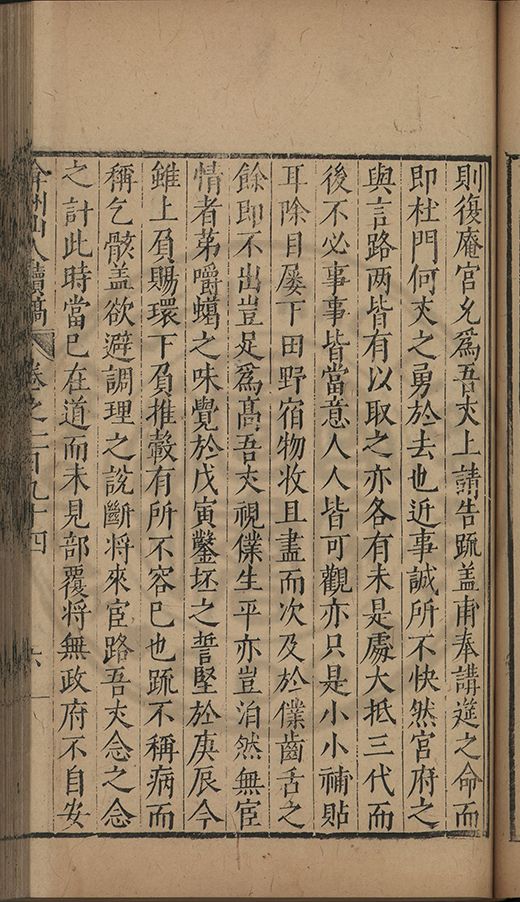 則復庵官允爲吾丈上請告疏盖甫奉講筵之命而
即杜門何丈之勇於去也近事誠所不快然官府之
與言路两皆有以取之亦各有未是處大抵三代而
後不必事事皆當意人人皆可觀亦只是小小補貼
耳除目屡下田野宿物收且盡而次及於僕齒舌之
餘即不出豈足爲高吾丈視僕生平亦豈泊然無宦
情者苐嚼蠟之味覺於戊寅鑿坯之誓堅於庚辰今
雖上負賜環下負推轂有所不容已也疏不稱病而
稱乞骸盖欲避調理之說斷将來宦路吾丈念之念
之計此時當已在道而未見部覆将無政府不自安
弇州山人續稿 卷之一百九十四 六